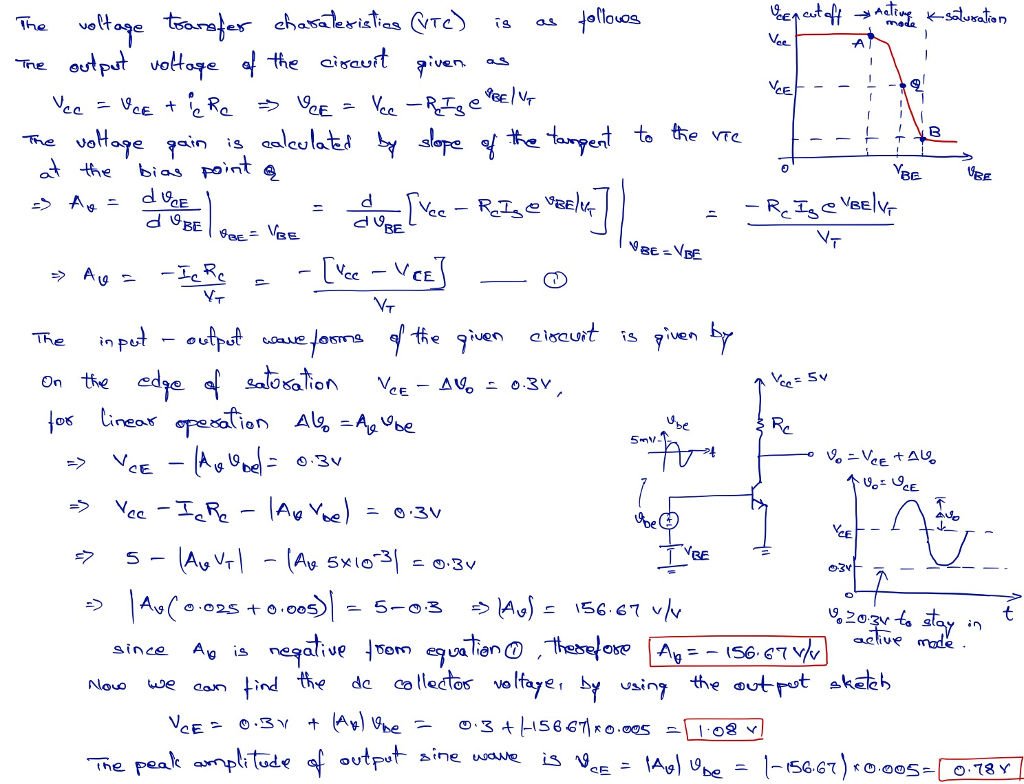 The voltage transfer charateristics (VTC) is as follows
The output voltage of the circuit given as
Vcc = VCE + ic Rc ⇒ VCE = Vcc − Rc Is e^(VBE/VT)
The voltage gain is calculated by slope of the tangent to the VTC
at the bias point Q
⇒ Av = dVCE/dVBE |VBE = VBE = d/dVBE [Vcc − Rc Is e^(VBE/VT)] |VBE = VBE = −Rc Is e^(VBE/VT) / VT
⇒ Av = −Ic Rc / VT = −[Vcc − VCE] / VT —— ①
VCE cutoff → Active mode ← saturation
Vcc
A
VCE
Q
B
0
VBE
VBE
The input - output waveforms of the given circuit is given by
On the edge of saturation VCE − ΔVo = 0.3V,
for linear operation ΔVo = Av Vbe
⇒ VCE − |Av Vbe| = 0.3V
⇒ Vcc − Ic Rc − |Av Vbe| = 0.3V
⇒ 5 − |Av VT| − |Av 5×10^-3| = 0.3V
⇒ |Av(0.025 + 0.005)| = 5−0.3 ⇒ |Av| = 156.67 V/V
Vcc = 5V
Rc
Vbe
5mV
t
Vo = VCE + ΔVo
Vbe
VBE
Vo = VCE
ΔVo
VCE
0.3V
0
t
Vo ≥ 0.3V to stay in
active mode.
since Av is negative from equation ①, therefore Av = − 156.67 V/V
Now we can find the dc collector voltage, by using the output sketch
VCE = 0.3V + |Av| Vbe = 0.3 + |-156.67| × 0.005 = 1.08 V
The peak amplitude of output sine wave is VCE = |Av| Vbe = |-156.67| × 0.005 = 0.78V